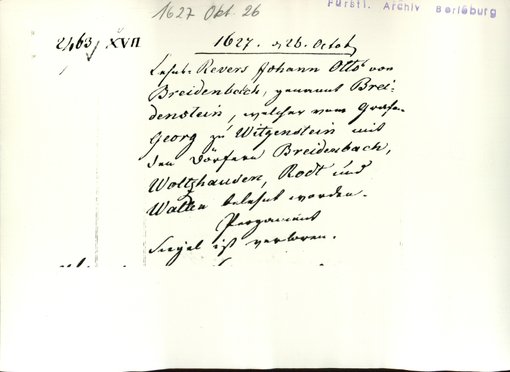 1627 Okt. 26
Fürstl. Archiv Berleburg
XVII
1627. 26. Octob
Lehns-Revers Johann Otto's von
Breidenbach, genannt Brei-
denstein, welcher vom Grafen
Georg zu Witgenstein mit
den Dörfern Breidenbach,
Wolzhausen, Rodt und
Wallen belehnt worden.
Pergament
Siegel ist verloren.